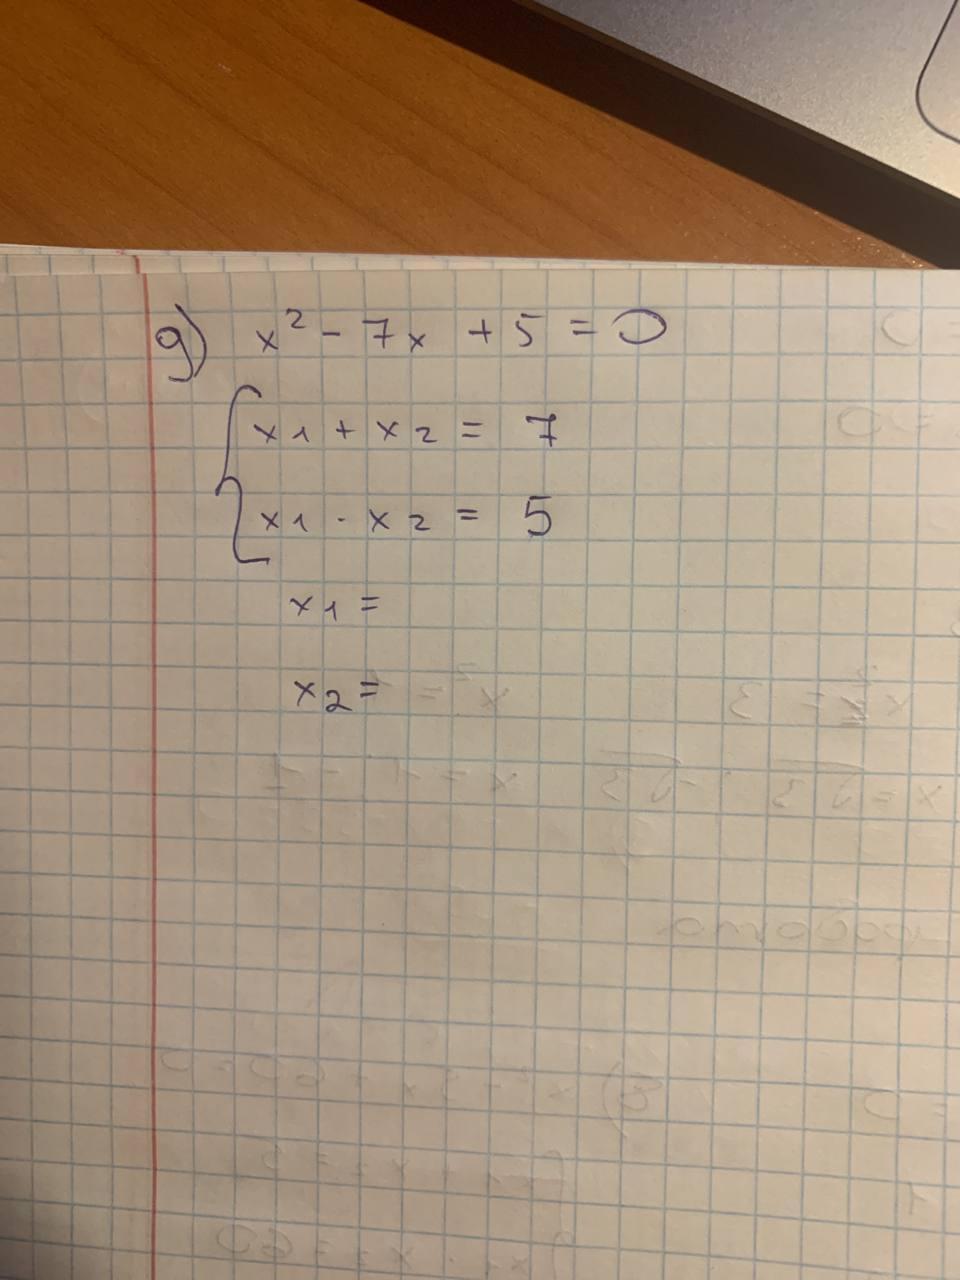 g) x² - 7x + 5 = 0
x1 + x2 = 7
x1 · x2 = 5
x1 =
x2 =